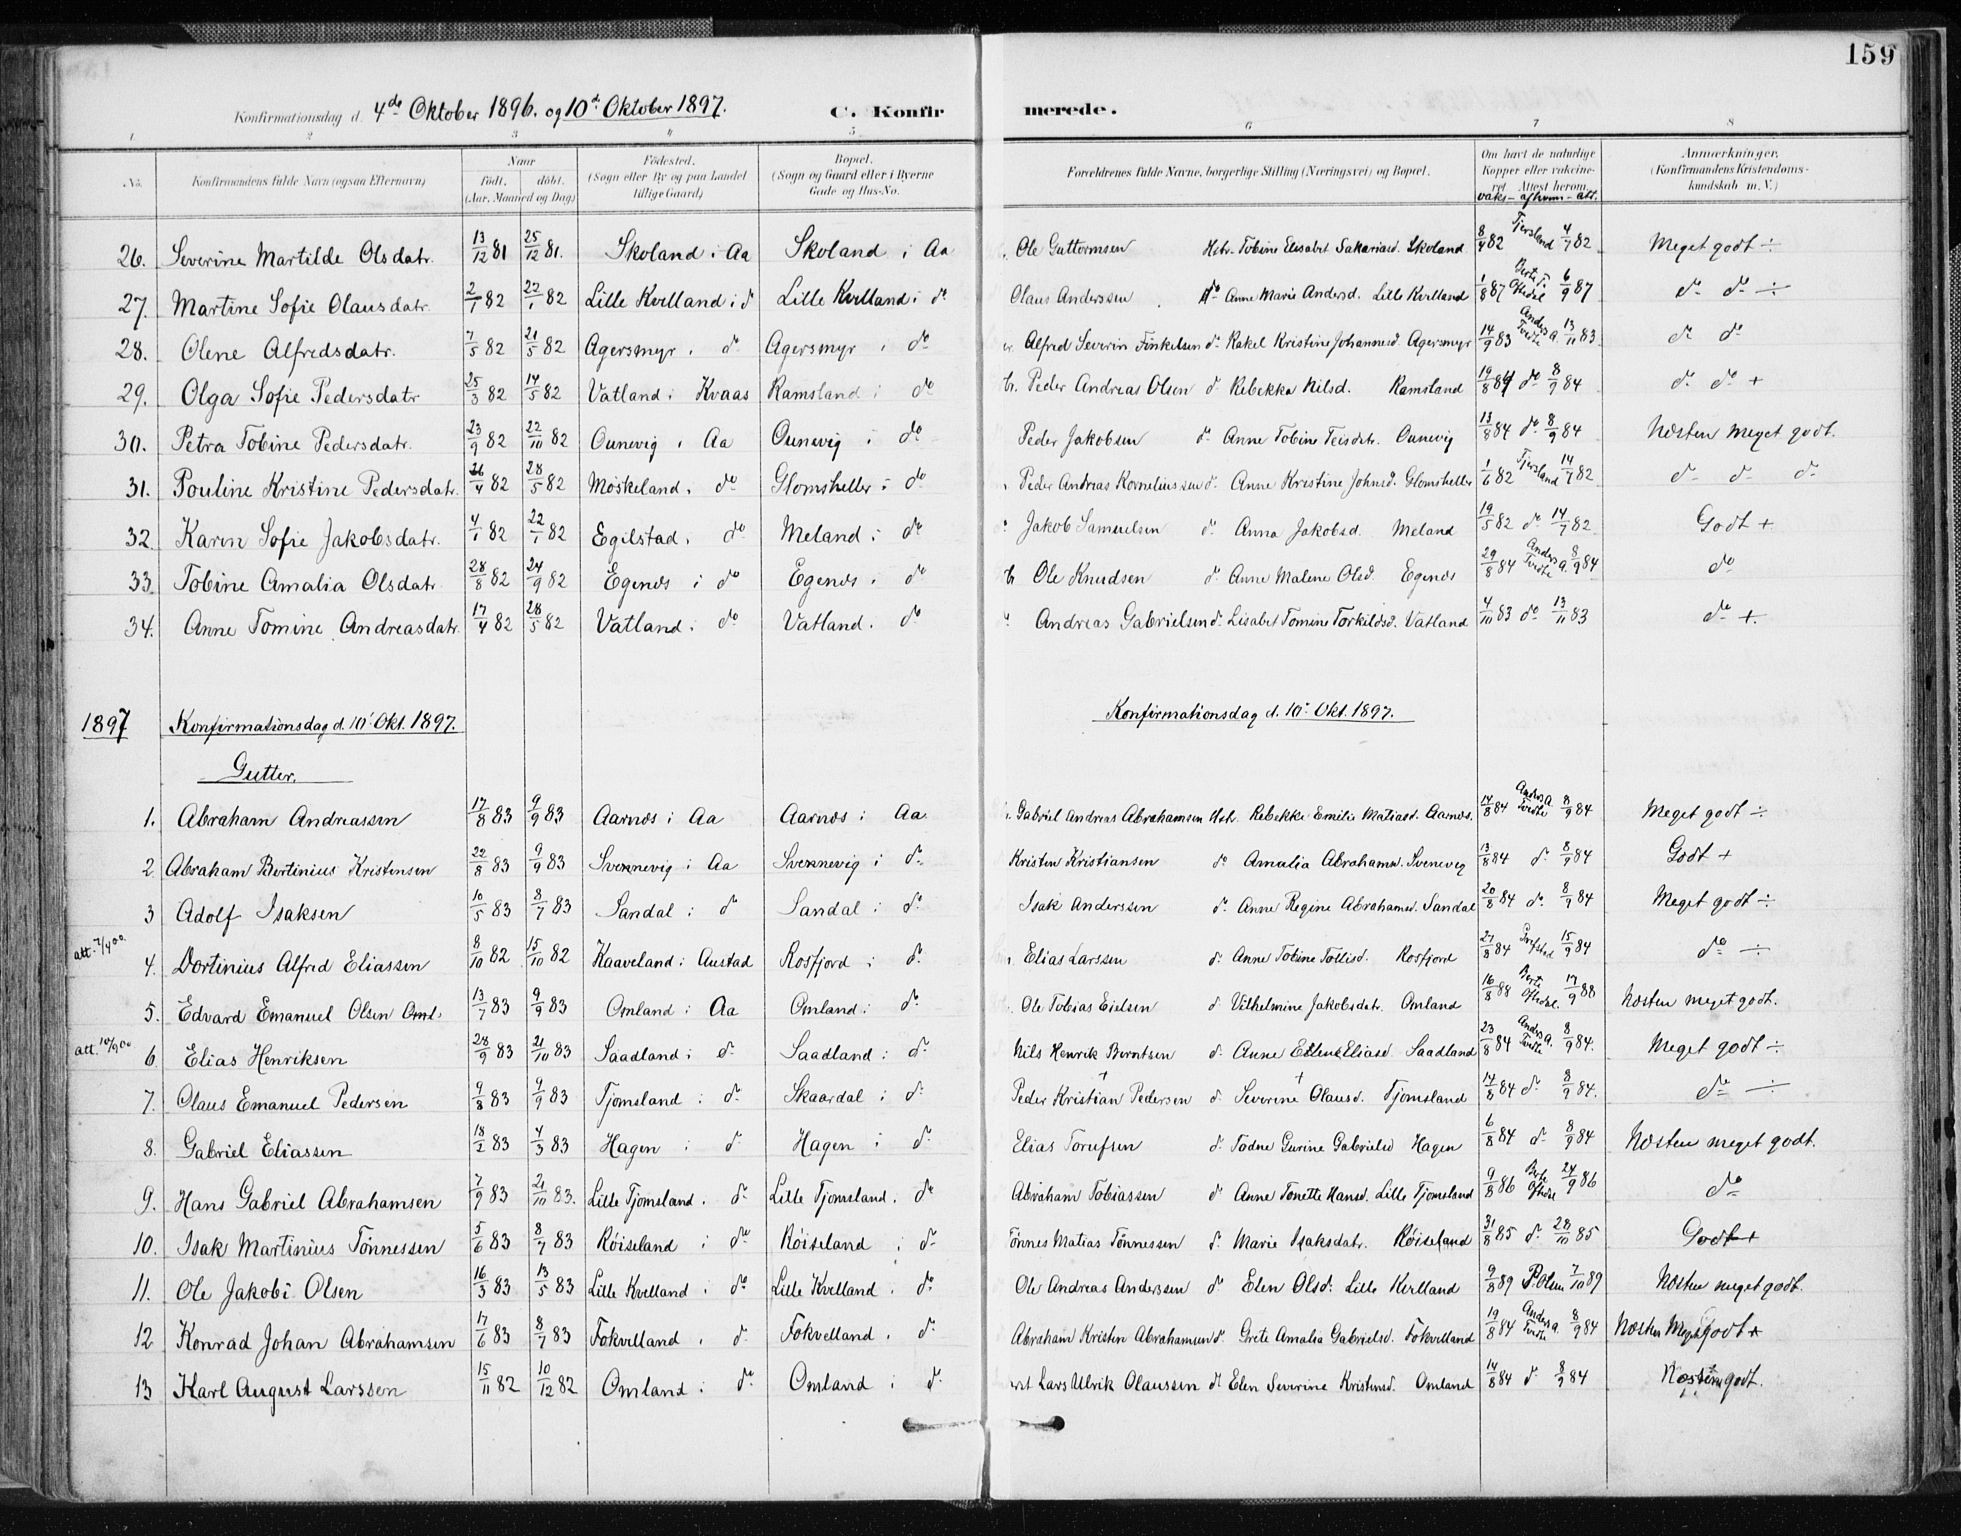 159
Konfirmationsdag d. 4de Oktober 1896. og 10d. Oktober 1897. C. Konfirmerede.
1 2 3 4 5 6 7 8
No. Konfirmandens fulde Navn (ogsaa Efternavn) Naar født. døbt. (Aar, Maaned og Dag) Fødested. (Sogn eller By og paa Landet tillige Gaard) Bopæl. (Sogn og Gaard eller i Byerne Gade og Hus-No. Forældrenes fulde Navne, borgerlige Stilling (Næringsvei) og Bopæl. Om havt de naturlige Kopper eller vakcineret. Attest herom. vaks- afhvem- att. Anmærkninger. (Konfirmandens Kristendomskundskab m. V.)
26. Severine Martilde Olsdatr. 13/12 81 25/12 81. Skoland i Aa Skoland i Aa Ole Guttormsen Hstr. Tobine Elisabet Sakariasd. Skoland 8/4 82 Tjersland 4/7 82 Meget godt ÷
27. Martine Sofie Olausdatr. 2/1 82 22/1 82 Lille Kvelland i do Lille Kvelland i do Olaus Anderssen do Anne Marie Andersd. Lille Kvelland 1/8 87 6/9 87 do do ÷
28. Olene Alfredsdatr. 7/5 82 21/5 82 Agersmyr i do Agersmyr i do Alfred Severin Finkelsen do Rakel Kristine Johannesd. Agersmyr 14/9 83 Anders A. Tvedte 13/11 83 do do
29. Olga Sofie Pedersdatr 25/3 82 14/5 82 Vatland i Kvaas Ramsland i do Peder Andreas Olsen do Rebekka Nilsd. Ramsland 19/8 84 do 8/9 84 do do +
30. Petra Tobine Pedersdatr. 23/9 82 22/10 82 Ounevig i Aa Ounevig i do Peder Jakobsen do Anne Tobine Teisdtr. Ounevig 13/8 84 do 8/9 84 Næsten meget godt.
31. Pouline Kristine Pedersdatr. 26/4 82 28/5 82 Møskeland i do Glomsheller i do Peder Andreas Korneliussen do Anne Kristine Johnsd. Glomsheller 1/6 82 Tjersland 14/7 82 do do do
32. Karen Sofie Jakobsdatr. 4/1 82 22/1 82 Egilstad i do Meland i do Jakob Samuelsen do Anna Jakobsd. Meland 19/5 82 do 14/7 82 Godt +
33. Tobine Amalia Olsdatr 28/8 82 24/9 82 Egenæs i do Egenæs i do Ole Knudsen do Anne Malene Olsd. Egenæs 29/8 84 Anders A. Tvedte 8/9 84 do
34. Anne Tomine Andreasdatr. 17/4 82 28/5 82 Vatland i do Vatland i do Andreas Gabrielsen do Lisabet Tomine Torkildsd. Vatland 4/10 83 do 13/11 83 do +.
1897 Konfirmationsdag d. 10' Okt. 1897. Konfirmationsdag d. 10' Okt. 1897.
Gutter.
1. Abraham Andreassen 17/8 83 9/9 83 Aarnæs i Aa Aarnæs i Aa Gabriel Andreas Abrahamsen Hstr. Rebekke Emilie Matiasd. Aarnæs. 14/8 84 Anders A. Tvedte 8/9 84 Meget godt ÷
2 Abraham Bertinius Kristensen 22/8 83 9/9 83 Svennevig i Aa Svennevig i do Kristen Kristiansen do Amalia Abrahamsd. Svenevig 13/8 84 do 8/9 84 Godt +
3 Adolf Isaksen 10/5 83 8/7 83 Sandal i do Sandal i do Isak Anderssen do Anne Regine Abrahamsd. Sandal 20/8 84 do 8/9 84 Meget godt ÷
att. 7/4 00. 4. Dortinius Alfred Eliassen 8/10 82 15/10 82 Kaaveland i Austad Rosfjord i do Elias Larssen do Anne Tobine Tollisd. Rosfjord 27/8 84 15/9 84 do ÷
5. Edvard Emanuel Olsen Oml. 13/7 83 9/9 83 Omland i Aa Omland i do Ole Tobias Eielsen do Vilhelmine Jakobsdatr. Omland 16/8 88 17/9 88 Næsten meget godt.
att. 10/9 00 6. Elias Henriksen 28/9 83 21/10 83 Saadland i do Saadland i do Nils Henrik Berntsen do Anne Ellene Eliasd. Saadland 23/8 84 Anders A. Tvedte 8/9 84. Meget godt ÷
7. Olaus Emanuel Pedersen 9/8 83 9/9 83 Tjomsland i do Skaardal i do Peder Kristian Pedersen do Severine Olausd. Tjomsland 14/8 84 do 8/9 84. do ÷
8. Gabriel Eliassen 18/2 83 4/3 83 Hagen i do Hagen i do Elias Torufsen do Todne Gurine Gabrielsd Hagen 6/8 84 do 8/9 84 Næsten meget godt.
9. Hans Gabriel Abrahamsen 7/9 83 21/10 83. Lille Tjomsland i do Lille Tjomsland i do Abraham Tobiassen do Anne Tonette Hansd. Lille Tjomsland 9/8 86 24/9 86 do
10. Isak Martinius Tønnessen 5/6 83 8/7 83 Røiseland i do Røiseland i do Tønnes Matias Tønnessen do Marie Isaksdatr. Røiseland 31/8 85 do 28/10 85 Godt +
11. Ole Jakobi Olsen 16/3 83 13/5 83 Lille Kvelland i do Lille Kvelland i do Ole Andreas Anderssen do Elen Olsd. Lille Kvelland 9/8 89 P. Olsen 7/10 89 Næsten meget godt.
12 Konrad Johan Abrahamsen 17/6 83 8/7 83 Fokvelland i do Fokvelland i do Abraham Kristen Abrahamsen do Grete Amalia Gabrielsd. Fokvelland 19/8 84 Anders A. Tvedte 8/9 84 Næsten Meget godt +
13 Karl August Larssen 15/11 82 10/12 82 Omland i do Omland i do Lars Ulrik Olaussen do Elen Severine Kristensd. Omland 14/8 84 do 8/9 84 Næsten godt.